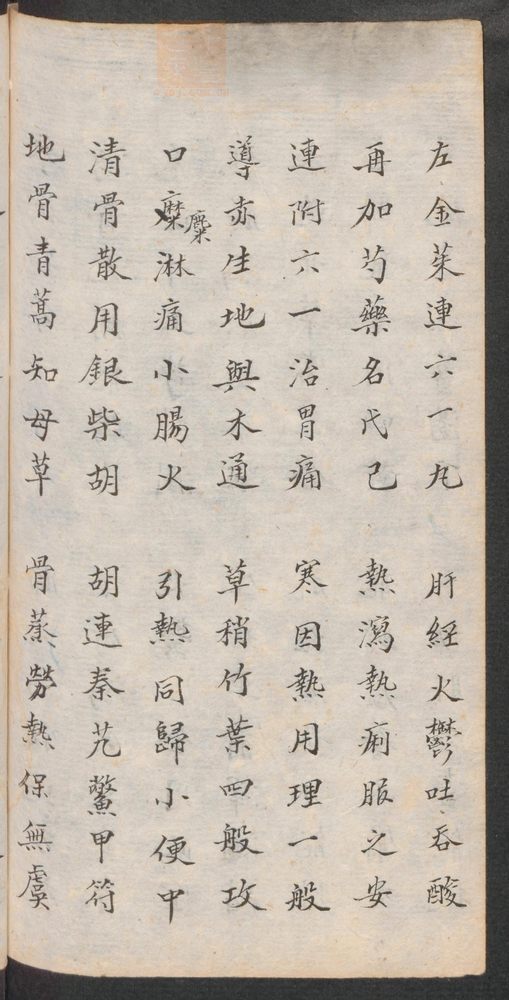 左金茱連六一丸　肝經火鬱吐吞酸
再加芍藥名戊己　熱瀉熱痢服之安
連附六一治胃痛　寒因熱用理一般
導赤生地與木通　草稍竹葉四般攻
口糜糜淋痛小腸火　引熱同歸小便中
清骨散用銀柴胡　胡連秦艽鱉甲符
地骨青蒿知母草　骨蒸勞熱保無虞